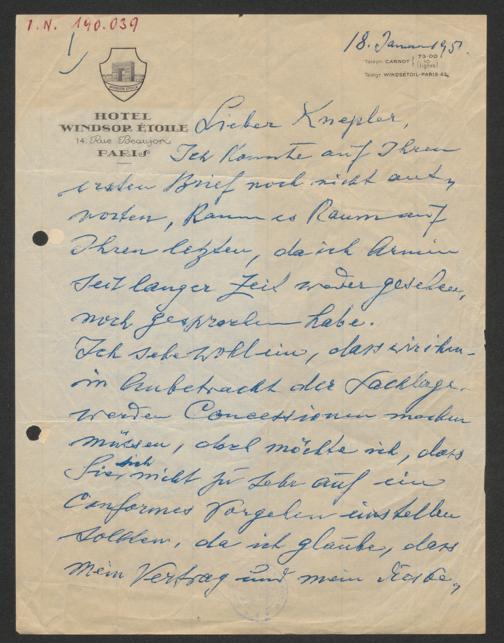 I.N. 190.039
18. Januar 195
Téléph. CARNOT 73-00
10
(lignes)
Télégr. WINDSETOIL-PARIS
HOTEL
WINDSOR ÉTOILE
14, Rue Beaujon
PARIS
Lieber Knepler,
Ich konnte auf Ihren
ersten Brief noch nicht ant-
worten, kann es kaum auf
Ihren letzten, da ich Armin
seit langer Zeit weder gesehen,
noch gesprochen habe.
Ich sehe wohl ein, dass wir ihm-
in Anbetracht der Sachlage-
werden Concessionen machen
müssen, doch möchte ich, dass
Sie sich nicht zu sehr auf ein
conformes Vorgehen einstellen
sollten, da ich glaube, dass
mein Vertrag und mein